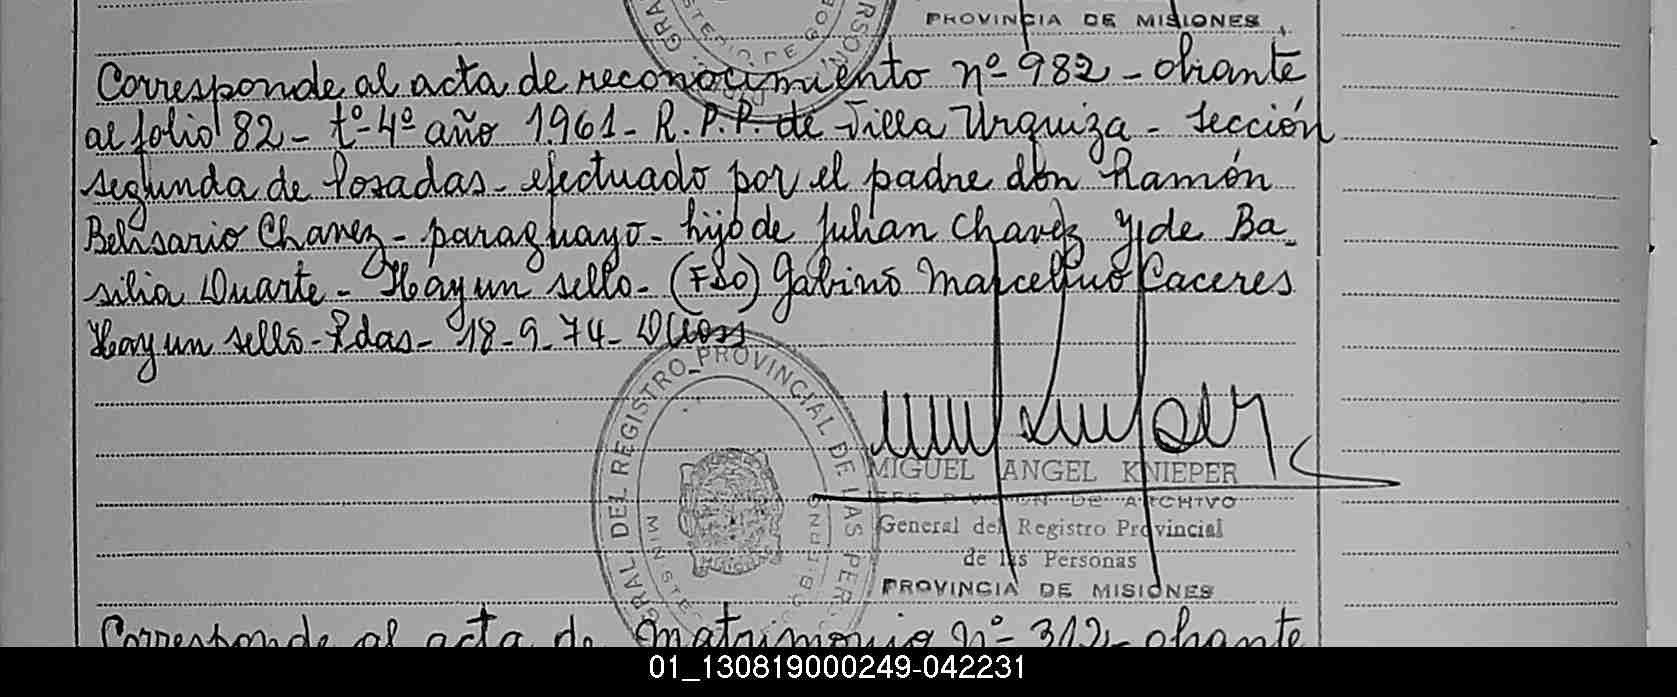 PROVINCIA DE MISIONES
Corresponde al acta de reconocimiento nº 982 - obrante
al folio 82 - tº 4º año 1.961 - R.P.P. de Villa Urquiza - sección
segunda de Posadas - efectuado por el padre don Ramón
Belisario Chavez - paraguayo - hijo de Julian Chavez y de Ba-
silia Duarte - Hay un sello - (FDO) Gabino Marcelino Caceres
Hay un sello - Pdas - 18-9-74 -
GRAL DEL REGISTRO PROVINCIAL DE LAS PER
MINISTE
MIGUEL ANGEL KNIEPER
JEFE DIVISION DE ARCHIVO
General del Registro Provincial
de las Personas
PROVINCIA DE MISIONES
Corresponde al acta de matrimonio nº 312 - obrante
01_130819000249-042231